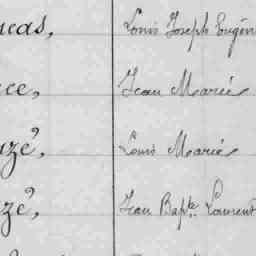 ucas, Louis Joseph Eugén
ce, Jean Marie
uzé, Louis Marie
zé, Jean Bapte. Laurent